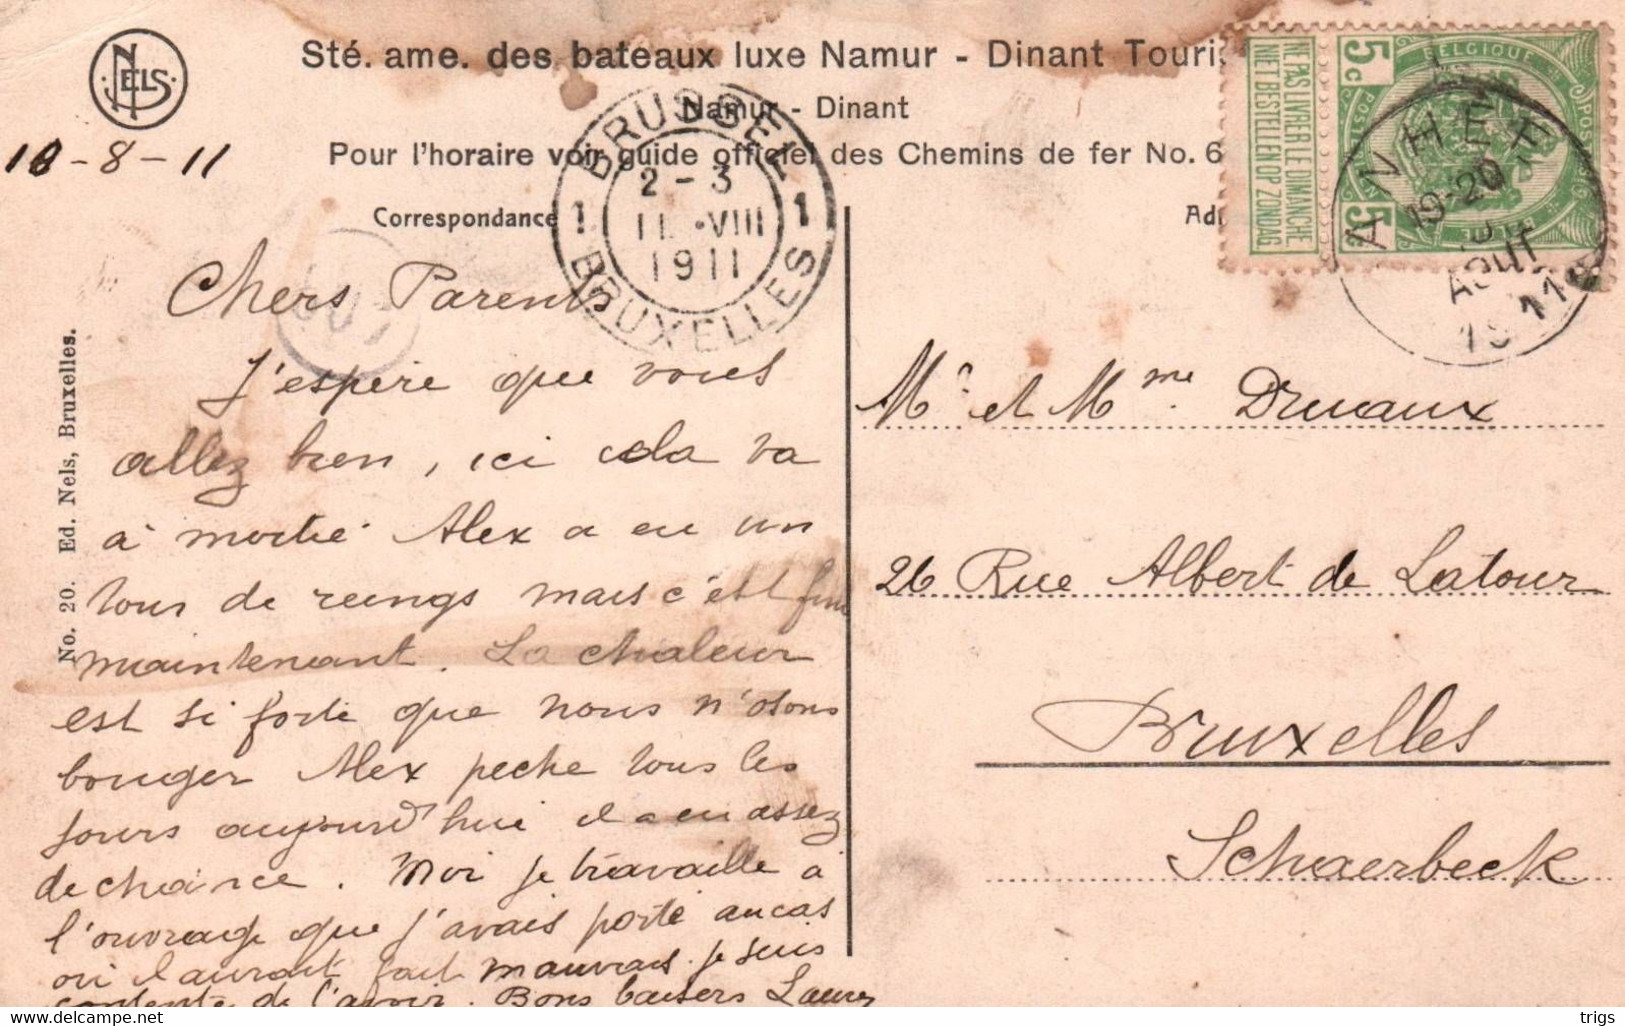 NELS
Sté. ame. des bateaux luxe Namur - Dinant Touri
Namur - Dinant
Pour l'horaire voir guide officiel des Chemins de fer No. 6
10-8-11
Correspondance
BRUSSEL
2-3
11 VIII
1911
1 1
BRUXELLES
NE PAS LIVRER LE DIMANCHE
NIET BESTELLEN OP ZONDAG
BELGIQUE
5c
5c
ANHÉE
19-20
AOUT
1911
No. 20. Ed. Nels, Bruxelles.
Chers Parents
J'espère que vous
allez bien, ici cela va
à moitié Alex a eu un
tour de reings mais c'est fini
maintenant. La chaleur
est si forte que nous n'osons
bouger Alex peche tous les
jours aujourd'hui il a eu assez
de chance. Moi je travaille à
l'ouvrage que j'avais porté au cas
où il aurait fait mauvais. je suis
contente de l'avoir. Bons baisers Laure
Mr et Mme. Druaux
26 Rue Albert de Latour
Bruxelles
Schaerbeek
trigs
www.delcampe.net